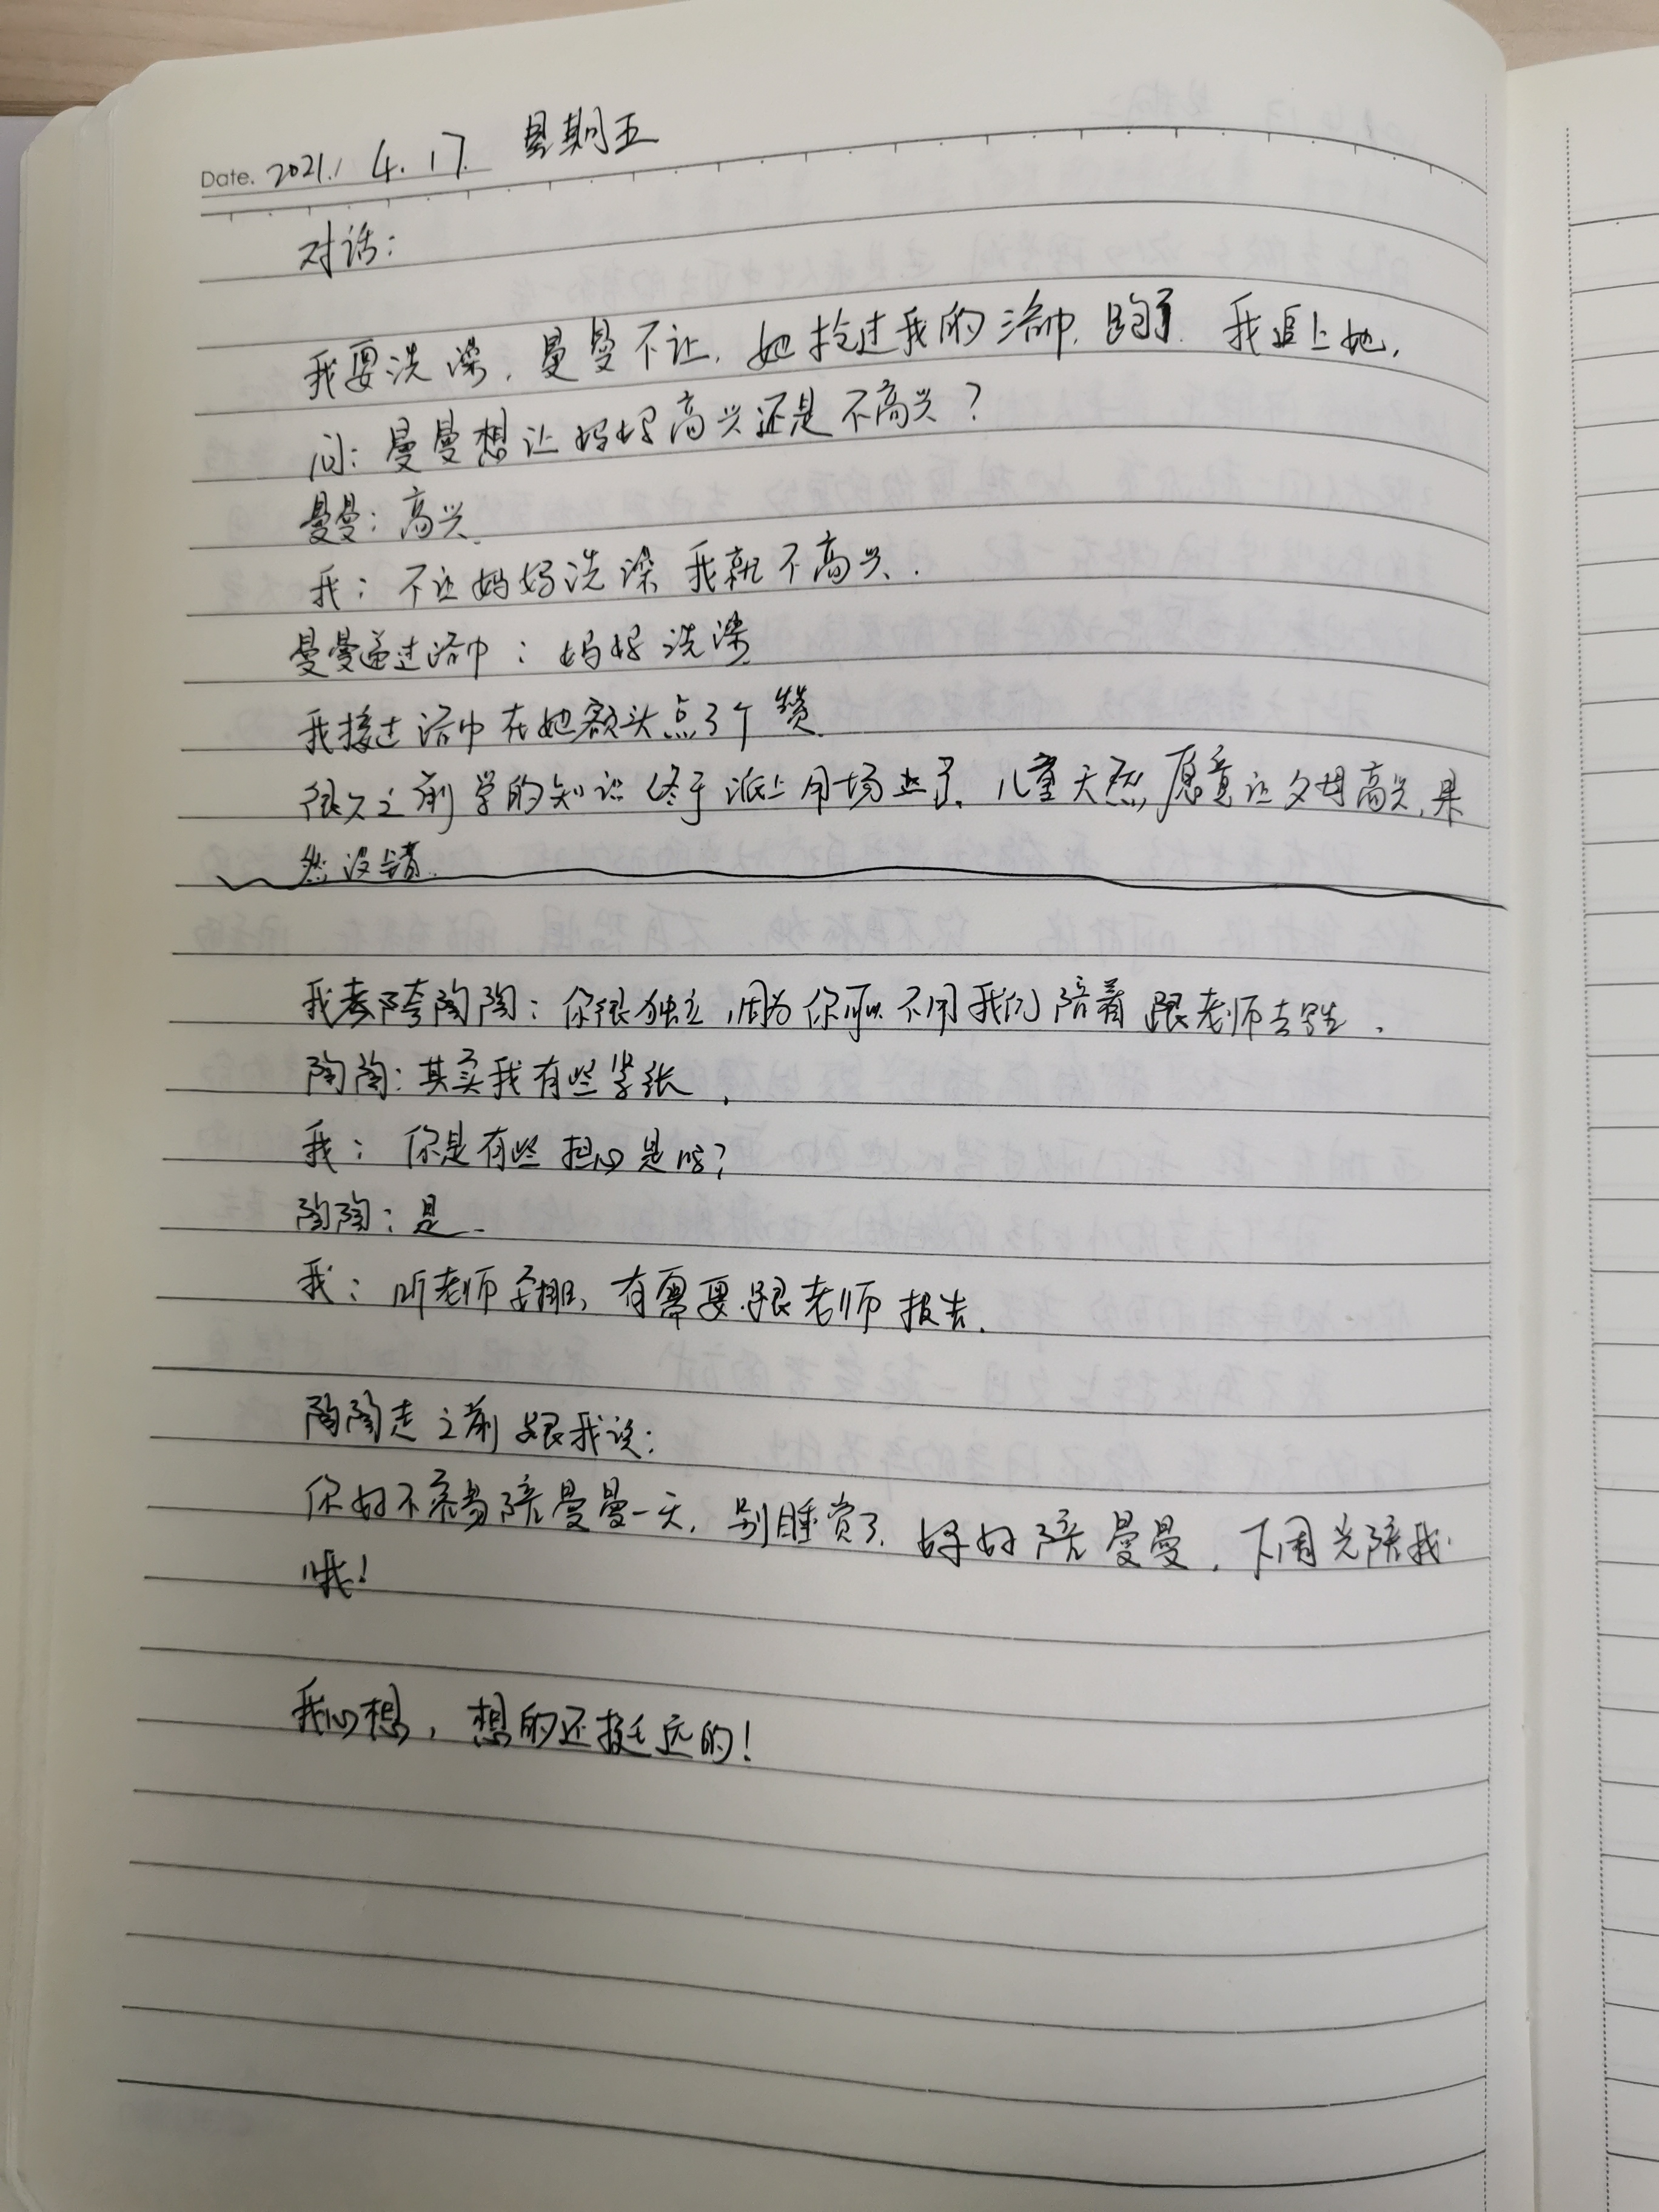 Date. 2021. 4. 17. 星期五
对话：
我要洗澡，曼曼不让，她抢过我的浴巾，跑了。我追上她，
问：曼曼想让妈妈高兴还是不高兴？
曼曼：高兴。
我：不让妈妈洗澡我就不高兴。
曼曼递过浴巾：妈妈洗澡
我接过浴巾在她额头点了个赞。
很久之前学的知识终于派上用场了。儿童天然愿意让父母高兴，果
然没错。
我夸陶陶：你很独立，因为你可以不用我们陪着跟老师去学。
陶陶：其实我有些紧张。
我：你是有些担心是吗？
陶陶：是。
我：听老师安排，有需要跟老师报告。
陶陶走之前跟我说：
你好不容易陪曼曼一天，别睡觉了，好好陪曼曼，下周光陪我
哦！
我心想，想的还挺远的！